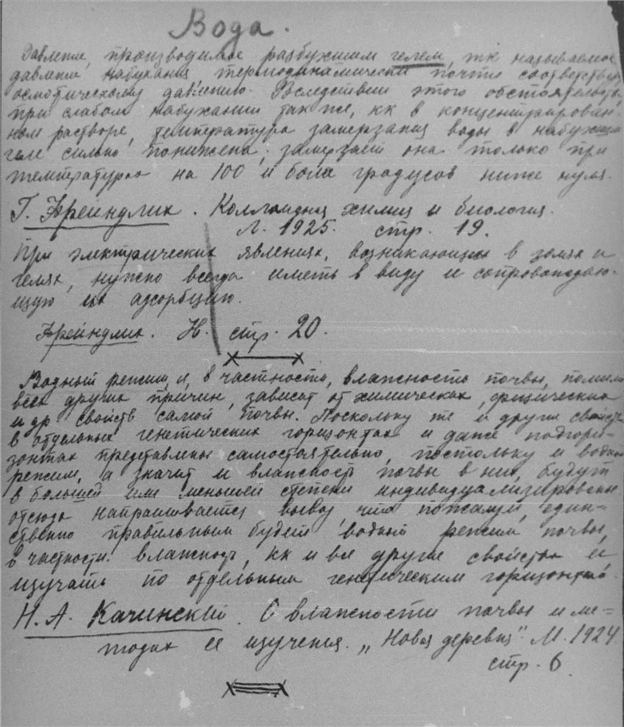 Вода.
Давление, производимое разбухшим гелем, тк называемое
давление набухания термодинамически почти соответствует
осмотическому давлению. Вследствии этого обстоятельства
при слабом набухании так же, кк в концентрирован-
ном растворе, температура замерзания воды в набухшем
геле сильно понижена; замерзает она только при
температурах на 100 и боле градусов ниже нуля.
Г. Фрейндлих. Коллоидная химия и биология.
Л. 1925. стр. 19.
При электрических явлениях, возникающих в золях и
гелях, нужно всегда иметь в виду и сопровождаю-
щую их адсорбцию.
Фрейндлих. Н. стр. 20.
Водный режим, и, в частности, влажность почвы, помимо
всех других причин, зависят от химических, физических
и др. свойств самой почвы. Поскольку те и другие свойства
в отдельных генетических горизонтах и даже подгори-
зонтах представлены самостоятельно, постольку и водный
режим, а значит и влажность почвы в них, будут
в большей или меньшей степени индивидуализированы
отсюда напрашивается вывод, что пожалуй, един-
ственно правильным будет водный режим почвы,
в частности влажность, кк и все другие свойства ее
изучать по отдельным генетическим горизонтам.
Н. А. Качинский. О влажности почвы и ме-
тодах ее изучения. „Новая деревня" М. 1924
стр. 6.